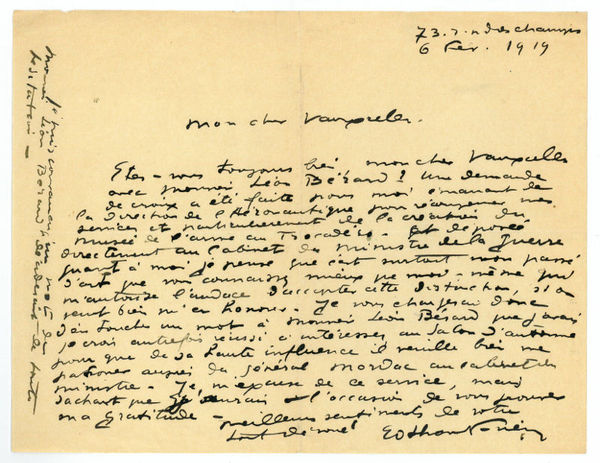 73. r. n d des champs
6 Fév. 1919
mon cher Vauxcelles.
Etes-vous toujours lié mon cher Vauxcelles
avec Monsieur Léon Bérard? Une demande
de croix a été faite pour moi émanant de
la Direction de l'Aéronautique pour récompenser mes
services et particulièrement de la création du
musée de l'arme au Trocadéro. Et déposée
directement au Cabinet du ministre de la Guerre
quant à moi je pense que c'est surtout mon passé
d'art que vous connaissez mieux que moi-même qui
m'autorise l'audace d'accepter cette distinction, si on
veut bien m'en honorer. Je vous chargerai donc
d'en toucher un mot à Monsieur Léon Bérard que j'avais
je crois autrefois réussi à intéresser au Salon d'automne
pour que de sa haute influence il veuille bien me
patroner auprès du général Mordac au cabinet du
ministre. Je m'excuse de ce service, mais
sachant que j'aurais l'occasion de vous prouver
ma gratitude - meilleurs sentiments de votre
tout dévoué
un mot de
Monsieur Léon Bérard